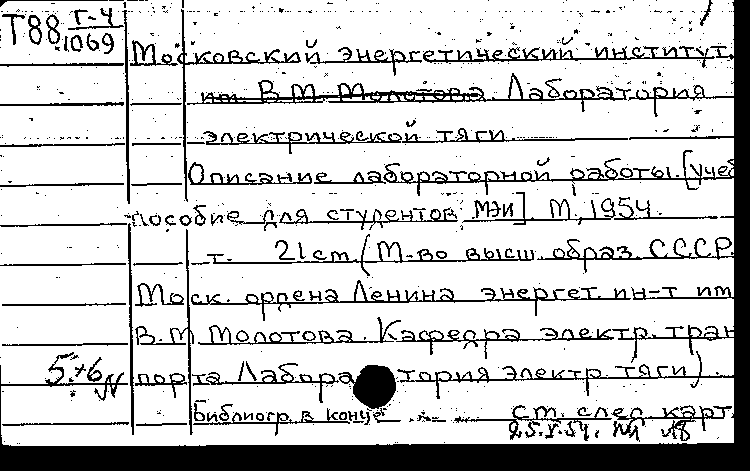 Т88 Г-4
1069
Московский энергетический институт.
им. В.М. Молотова. Лаборатория
электрической тяги.
Описание лабораторной работы. [Учеб
пособие для студентов МЭИ]. М., 1954.
т. 21 cm (М-во высш. образ. СССР.
Моск. ордена Ленина энергет. ин-т им
В.М. Молотова. Кафедра электр. тран
порта Лаборатория электр. тяги).
5:+6
Библиогр. в конце
ст. след. карт.